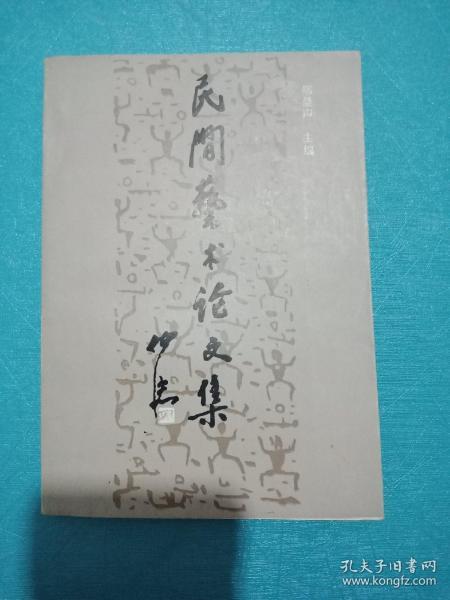 民間藝术论文集
主编
孔夫子旧书网
www.kongfz.com